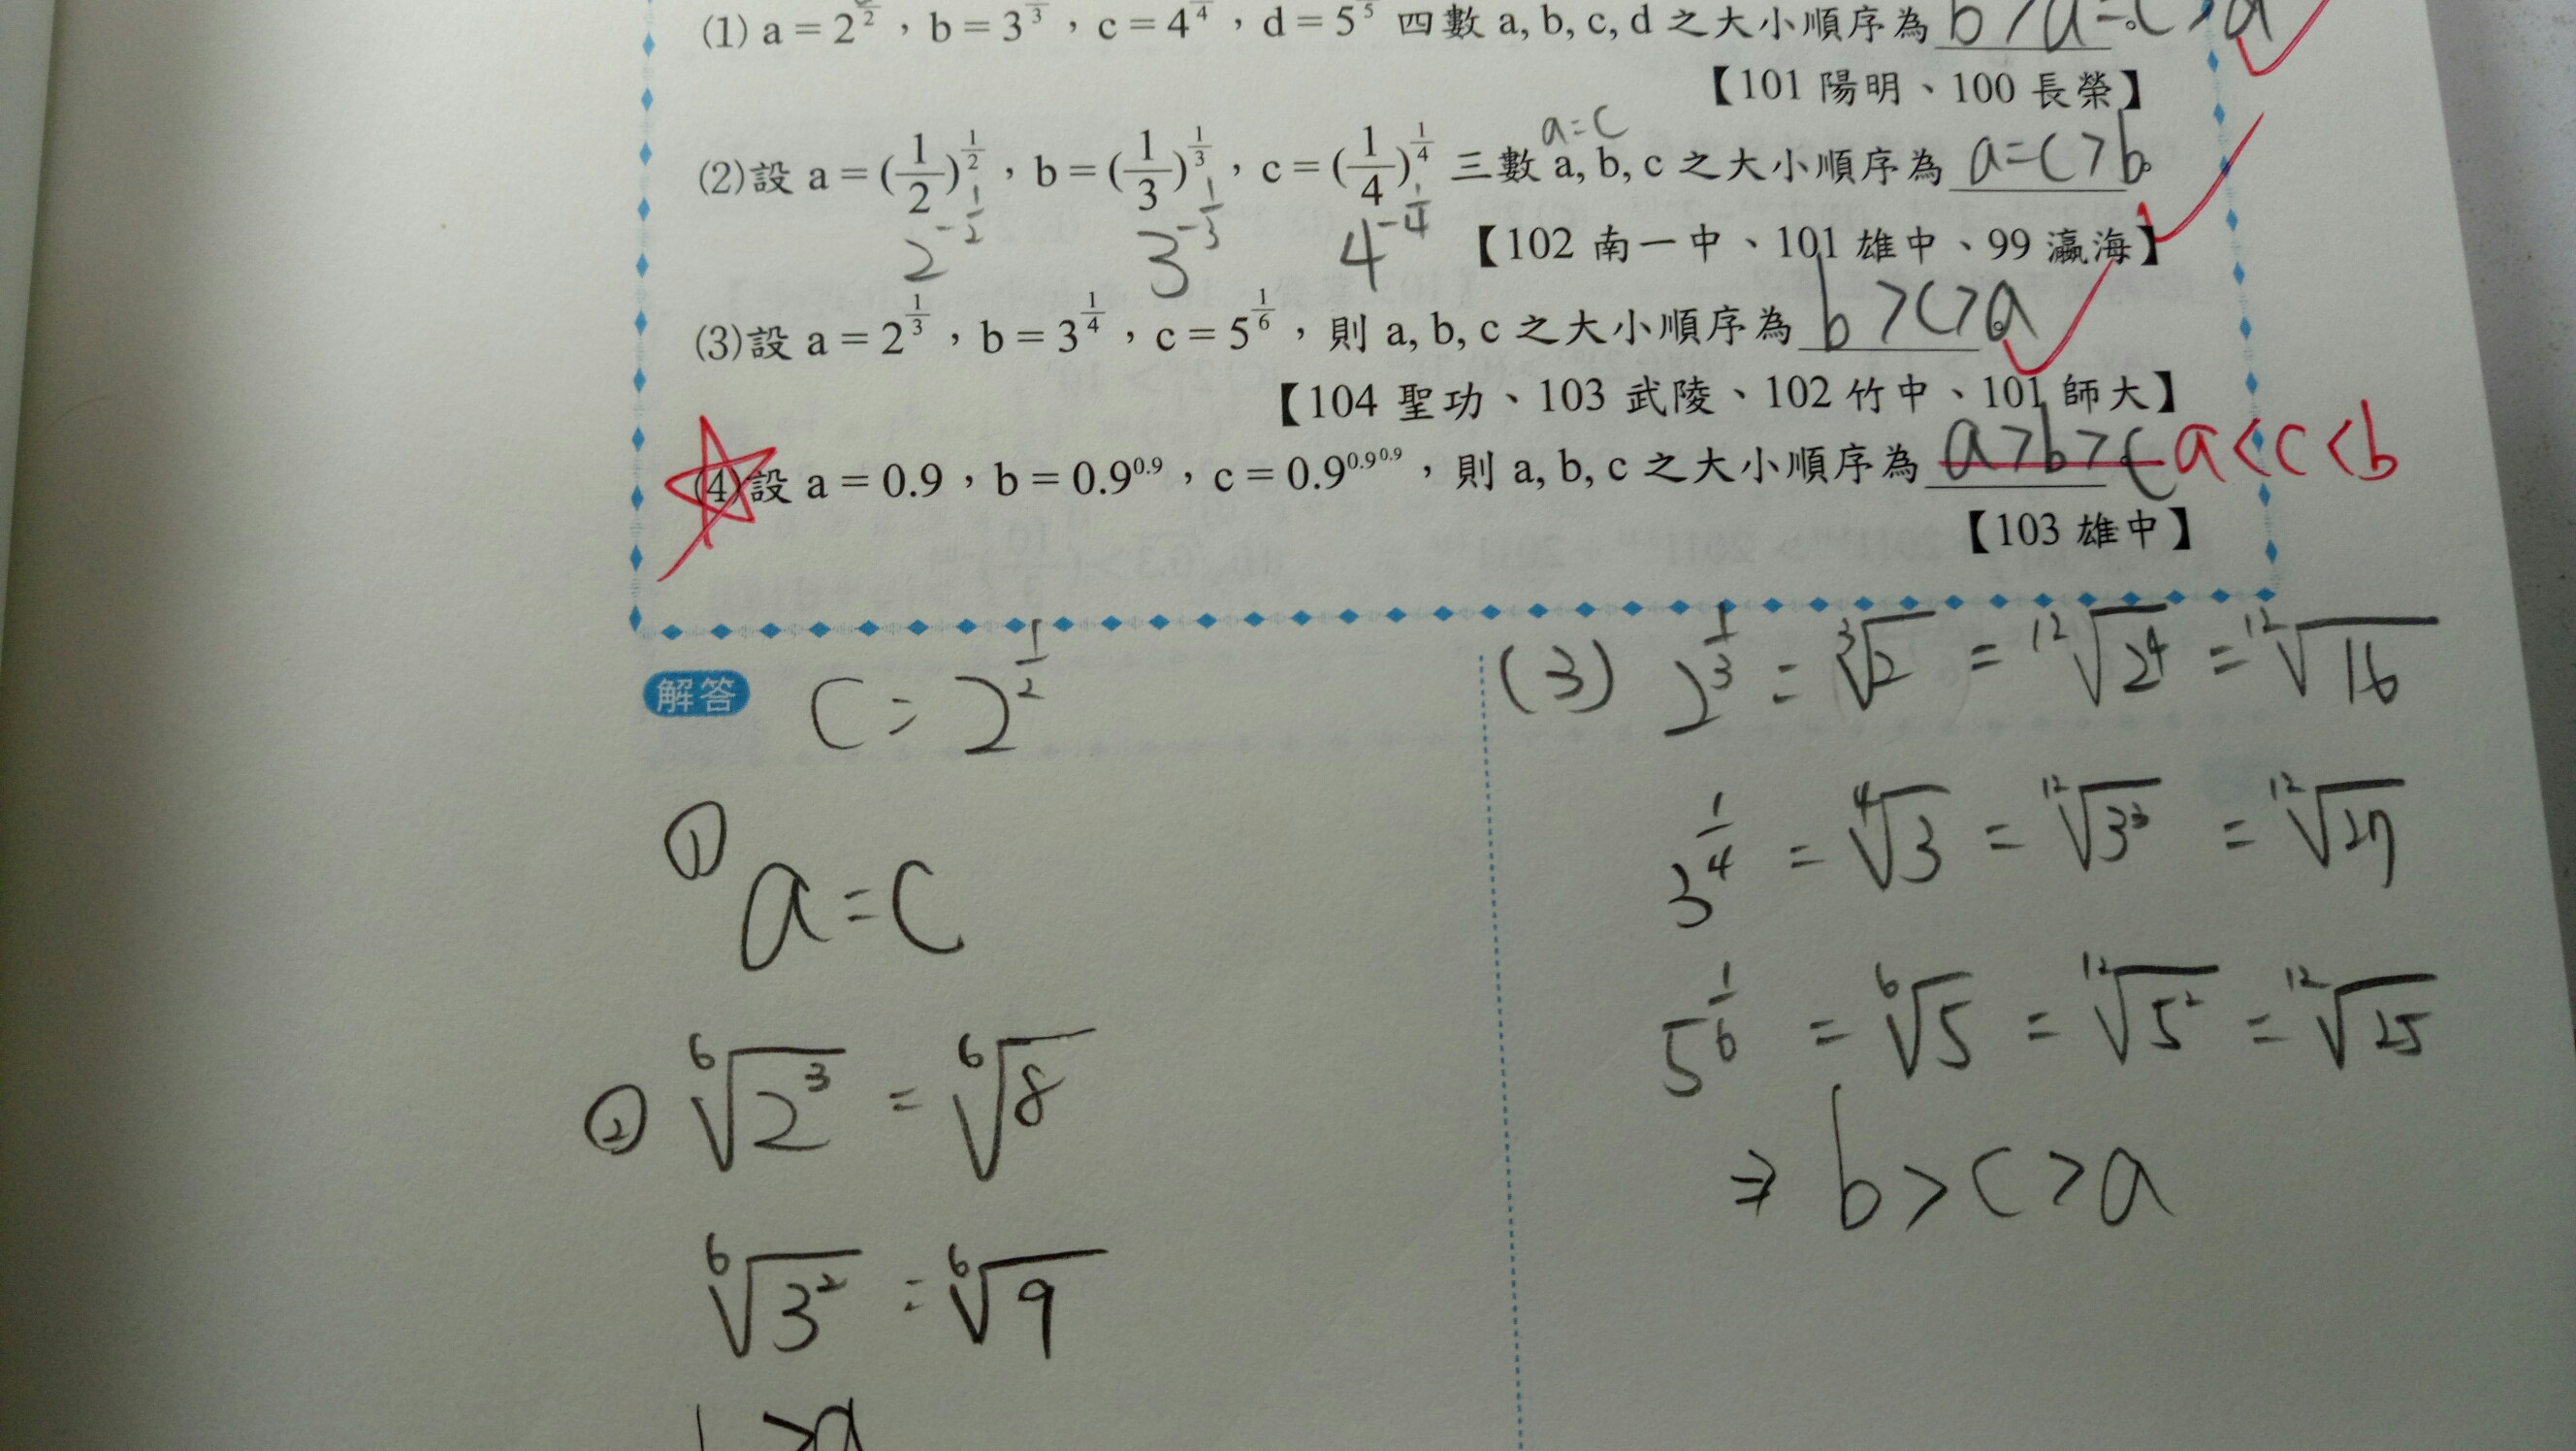 (1) a = 2^{1/2}, b = 3^{1/3}, c = 4^{1/4}, d = 5^{1/5} 四數 a, b, c, d 之大小順序為 b > a = c > d
【101 陽明、100 長榮】
a = c
(2) 設 a = (1/2)^{1/2}, b = (1/3)^{1/3}, c = (1/4)^{1/4} 三數 a, b, c 之大小順序為 a = c > b。
2^{-1/2} 3^{-1/3} 4^{-1/4}
【102 南一中、101 雄中、99 瀛海】
(3) 設 a = 2^{1/3}, b = 3^{1/4}, c = 5^{1/6}, 則 a, b, c 之大小順序為 b > c > a
【104 聖功、103 武陵、102 竹中、101 師大】
(4) 設 a = 0.9, b = 0.9^{0.9}, c = 0.9^{0.9^{0.9}}, 則 a, b, c 之大小順序為 a > b > c a < c < b
【103 雄中】
解答 c = 2^{1/2}
① a = c
② ⁶√2³ = ⁶√8
⁶√3² = ⁶√9
> a
(3) 2^{1/3} = ³√2 = ¹²√2⁴ = ¹²√16
3^{1/4} = ⁴√3 = ¹²√3³ = ¹²√27
5^{1/6} = ⁶√5 = ¹²√5² = ¹²√25
⇒ b > c > a